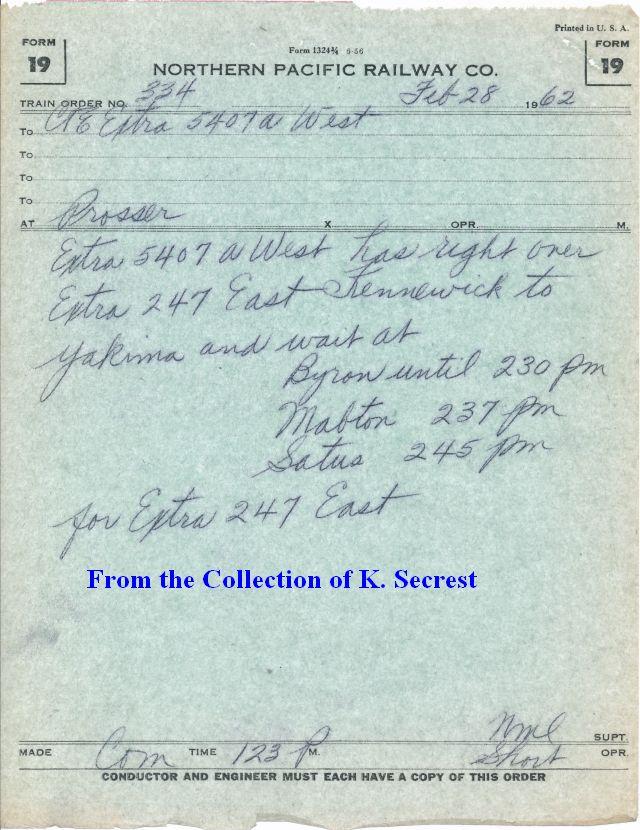 Printed in U. S. A.
FORM 19
Form 1324¾ 6-56
FORM 19
NORTHERN PACIFIC RAILWAY CO.
TRAIN ORDER NO. 334 Feb 28 1962
To C&E Extra 5407 A West
To
To
To
AT Prosser X OPR. M.
Extra 5407 A West has right over
Extra 247 East Kennewick to
Yakima and wait at
Byron until 230 pm
Mabton 237 pm
Satus 245 pm
for Extra 247 East
From the Collection of K. Secrest
NML SUPT.
MADE Com TIME 123 P M. Short OPR.
CONDUCTOR AND ENGINEER MUST EACH HAVE A COPY OF THIS ORDER